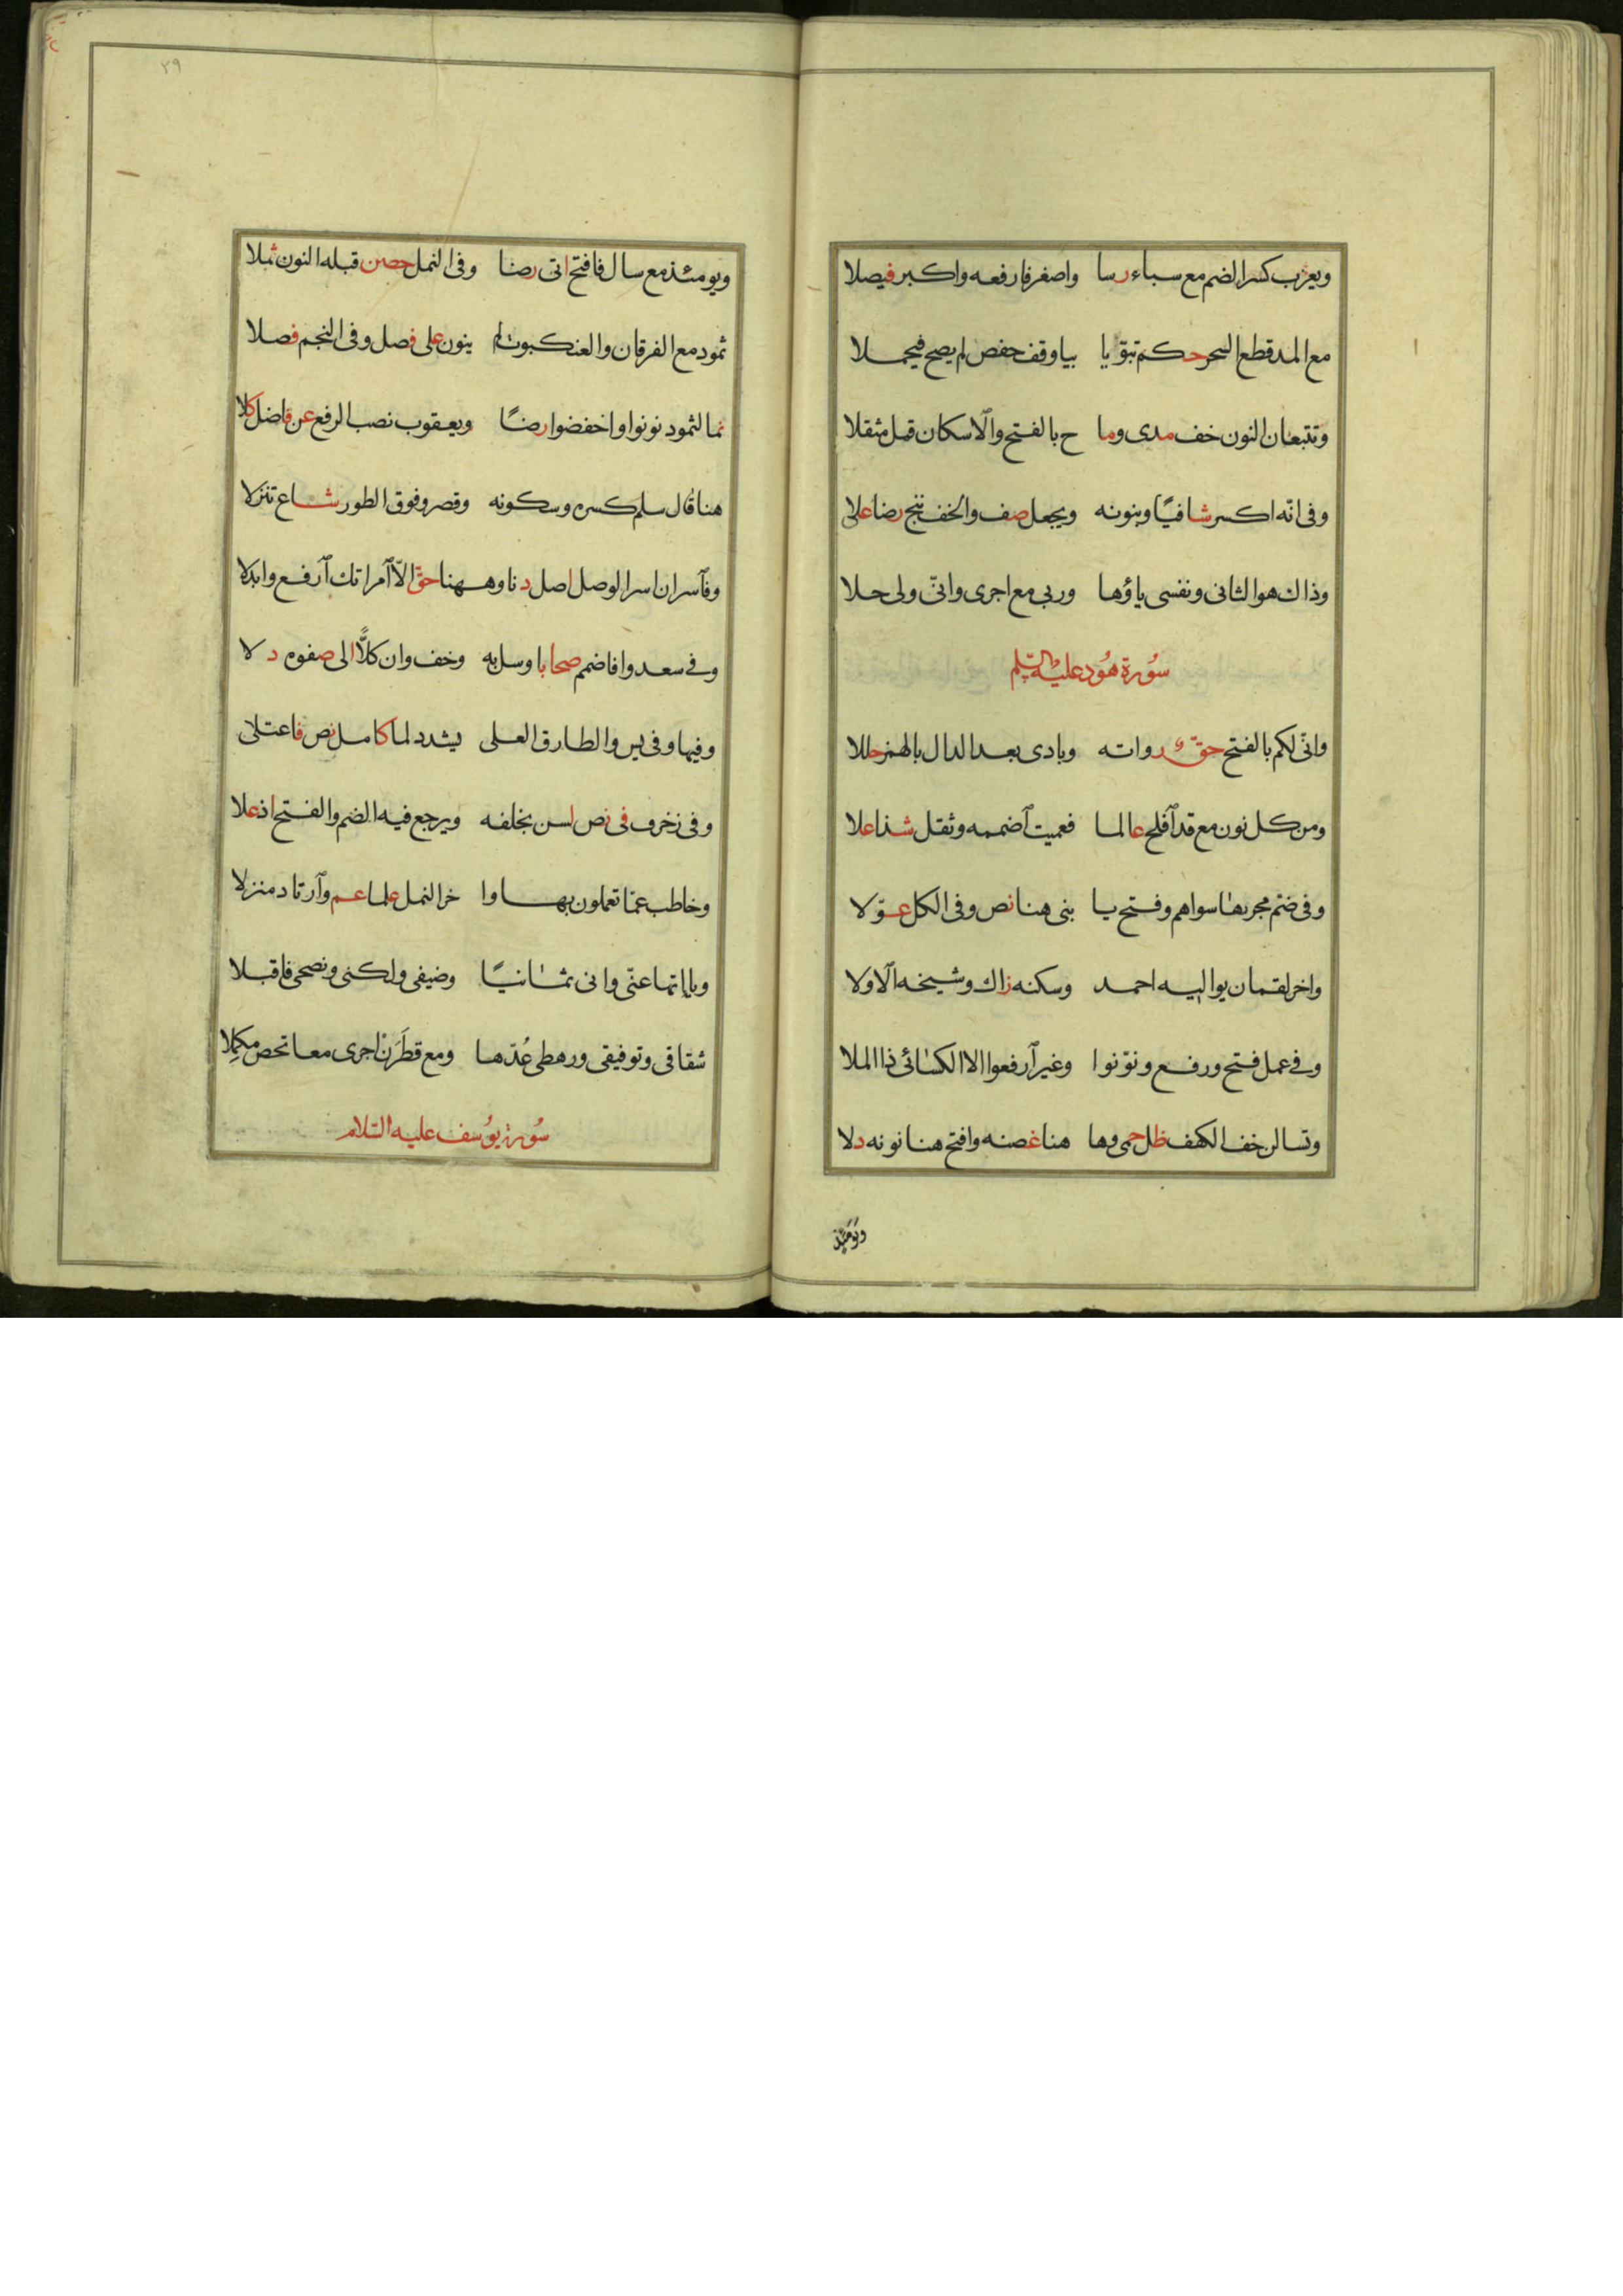 ويعزب كسر الضم مع سباء رسا واصغر فارفعه واكبر فيصلا
مع المد قطع السحر حكم تبوّيا بيا وقف حفص لم يصح فيحملا
وتتبعان النون خف مدى وما ج بالفتح والاسكان قبل مثقلا
وفى انّه اكسر شافيًا وبنونه ويجعل صف والخف ننج رضا علا
وذاك هو الثانى ونفسى ياؤها وربى مع اجرى وانّى ولى حلا
سُورة هُود عليه السّلم
وانّى لكم بالفتح حقّ رواته وبادى بعد الدال بالهمز حللا
ومن كل نون مع قد افلح عالما فعميت اضممه وثقل شذا علا
وفى ضم مجريها سواهم وفتح يا بنى هنا نص وفى الكل عوّلا
واخر لقمان يواليه احمد وسكنه زاك وشيخه الاولا
وفى عمل فتح ورفع ونوّنوا وغير ارفعوا الا الكسائى ذا الملا
وتسالن خف الكهف ظل حمى وها هنا غصنه وافتح هنا نونه دلا
ويومئذ
٢٩
ويومئذ مع سال فافتح اتى رضا وفى النمل حصن قبله النون ثملا
ثمود مع الفرقان والعنكبوت لم ينون على فصل وفى النجم فصلا
نما لثمود نونوا واخفضوا رضًا ويعقوب نصب الرفع عن فاضل كلا
هنا قال سلم كسره وسكونه وقصر وفوق الطور شاع تنزلا
وفاسر ان اسر الوصل اصل دنا وههنا حقّ الّا امراتك ارفع وابدلا
وفى سعدوا فاضمم صحابا وسل به وخف وان كلًّا الى صفوه دلا
وفيها وفى يس والطارق العلى يشدد لما كامل نص فاعتلى
وفى زخرف فى نص لسن بخلفه ويرجع فيه الضم والفتح اذ علا
وخاطب عمّا تعملون بها وا خر النمل علما عم وارتاد منزلا
وياءاتها عنّى وانى ثمانيًا وضيفى ولكنى ونصحى فاقبلا
شقاقى وتوفيقى ورهطى عُدّها ومع فطَرَن اجرى معا تحص مكمِلا
سُورة يوُسف عليه السّلام